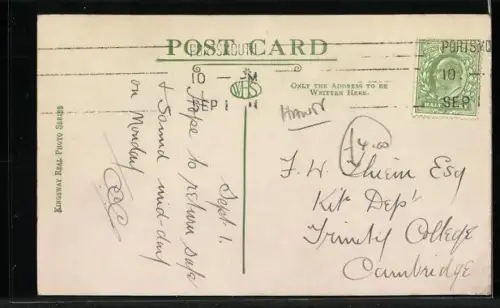 POST CARD
PORTSMOUTH
10 - M
SEP 1 11
WHS
ONLY THE ADDRESS TO BE
WRITTEN HERE.
PORTSMO
10.
SEP
KINGSWAY REAL PHOTO SERIES
Sept 1.
Hope to return safe
& sound mid-day
on Monday
HANTS
14.00
F. W.
Esq
Kit Dept
Trinity College
Cambridge